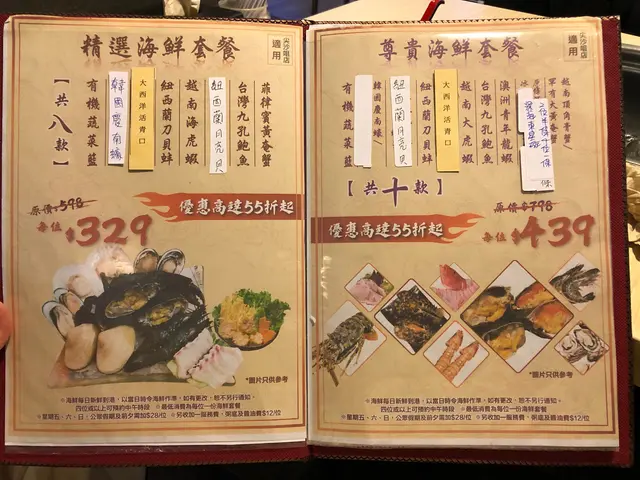 精選海鮮套餐
尖沙咀店
適用
【共八款】
菲律賓黃奄蟹
台灣九孔鮑魚
紐西蘭月克貝
越南海虎蝦
紐西蘭刀貝蚌
大西洋活青口
有機蔬菜籃
優惠高達55折起
原價$598
每位$329
*圖片只供參考
※海鮮每日新鮮到港，以當日時令海鮮作準，如有更改，恕不另行通知。
四位或以上可預約中午時段 ※最低消費為每位一份海鮮套餐
※星期五、六、日，公眾假期及前夕需加$28/位 ※另收加一服務費，粥底及醬油費$12/位
尊貴海鮮套餐
尖沙咀店
適用
越南頂角膏蟹
澳洲青年龍蝦
台灣九孔鮑魚
越南大虎蝦
大西洋活青口
紐西蘭月克貝
有機蔬菜籃
【共十款】
優惠高達55折起
原價$798
每位$439
*圖片只供參考
※海鮮每日新鮮到港，以當日時令海鮮作準，如有更改，恕不另行通知。
四位或以上可預約中午時段 ※最低消費為每位一份海鮮套餐
※星期五、六、日，公眾假期及前夕需加$28/位 ※另收加一服務費，粥底及醬油費$12/位